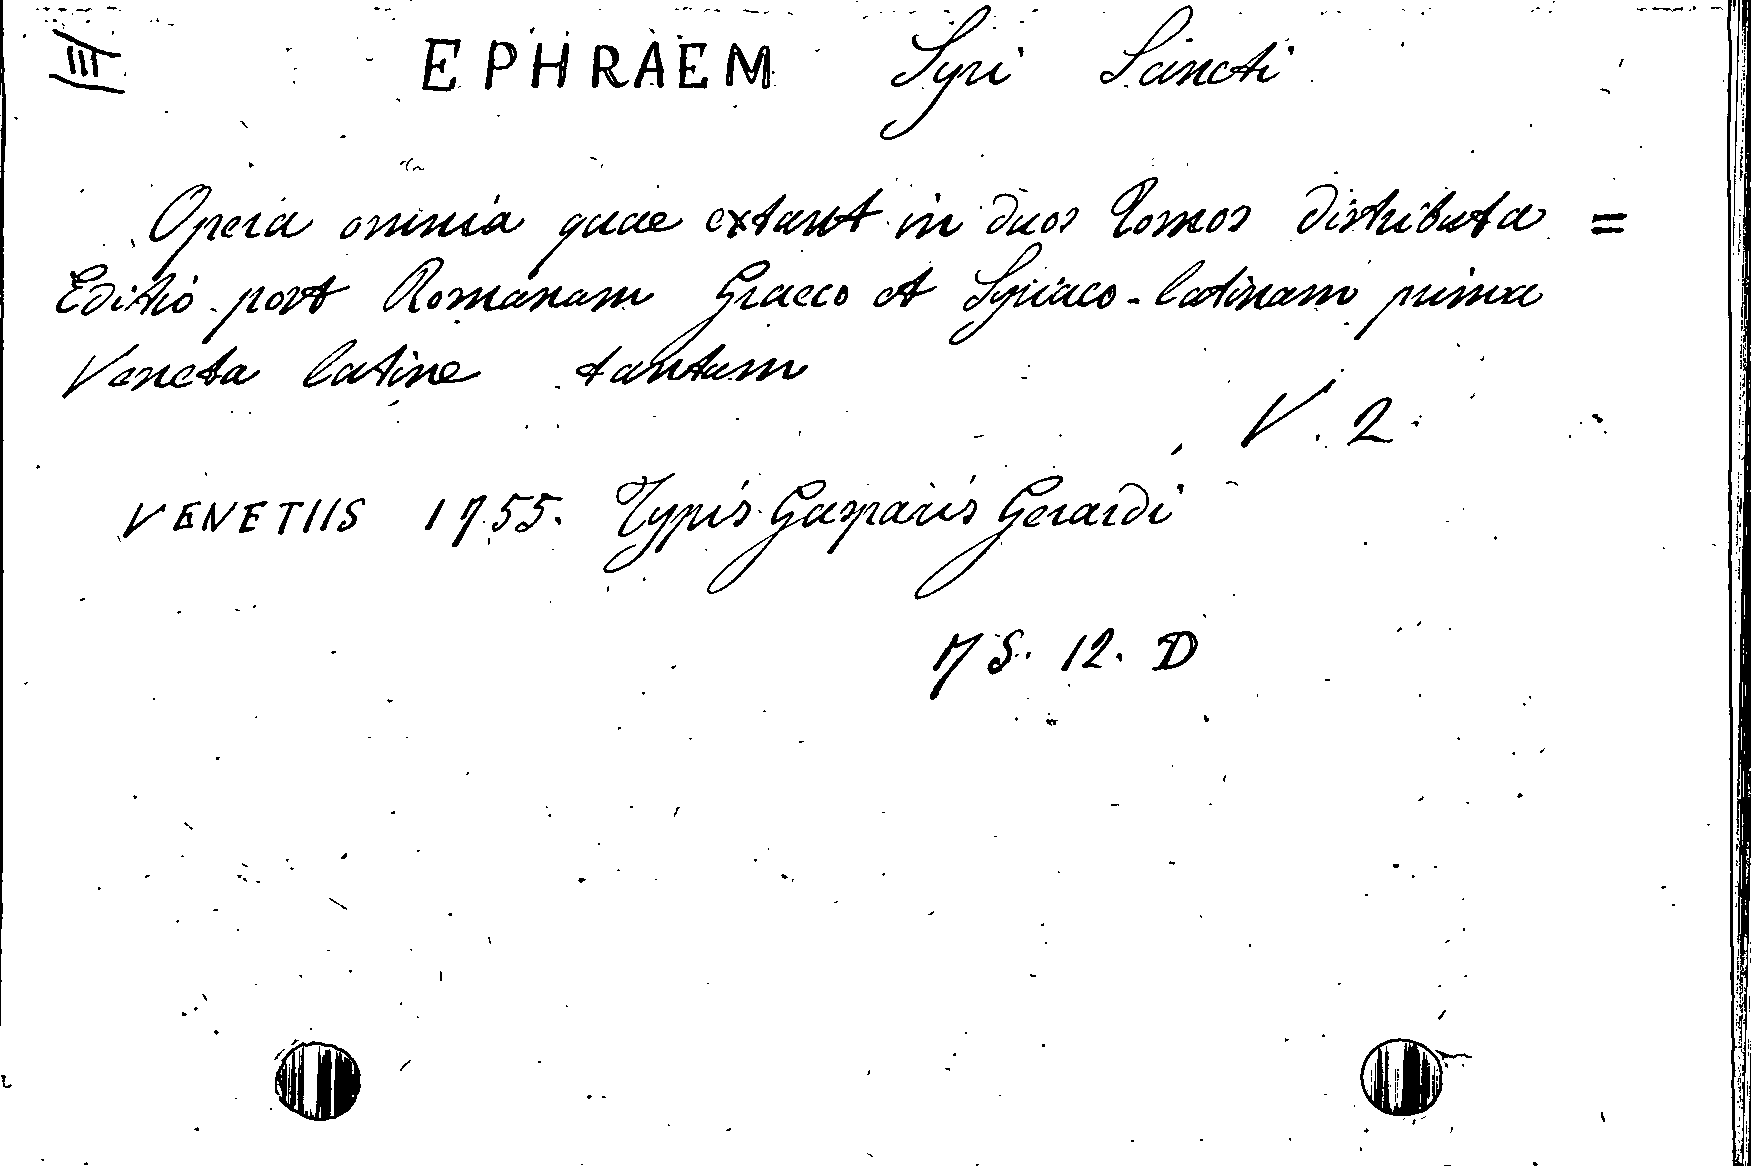 III EPHRAEM Syri Sancti
Opera omnia quae extant in duos Tomos distributa =
Editio post Romanam Graeco et Syriaco-latinam prima
Veneta latine tantum
V. 2
VENETIIS 1755. Typis Gasparis Gerardi
75. 12. D